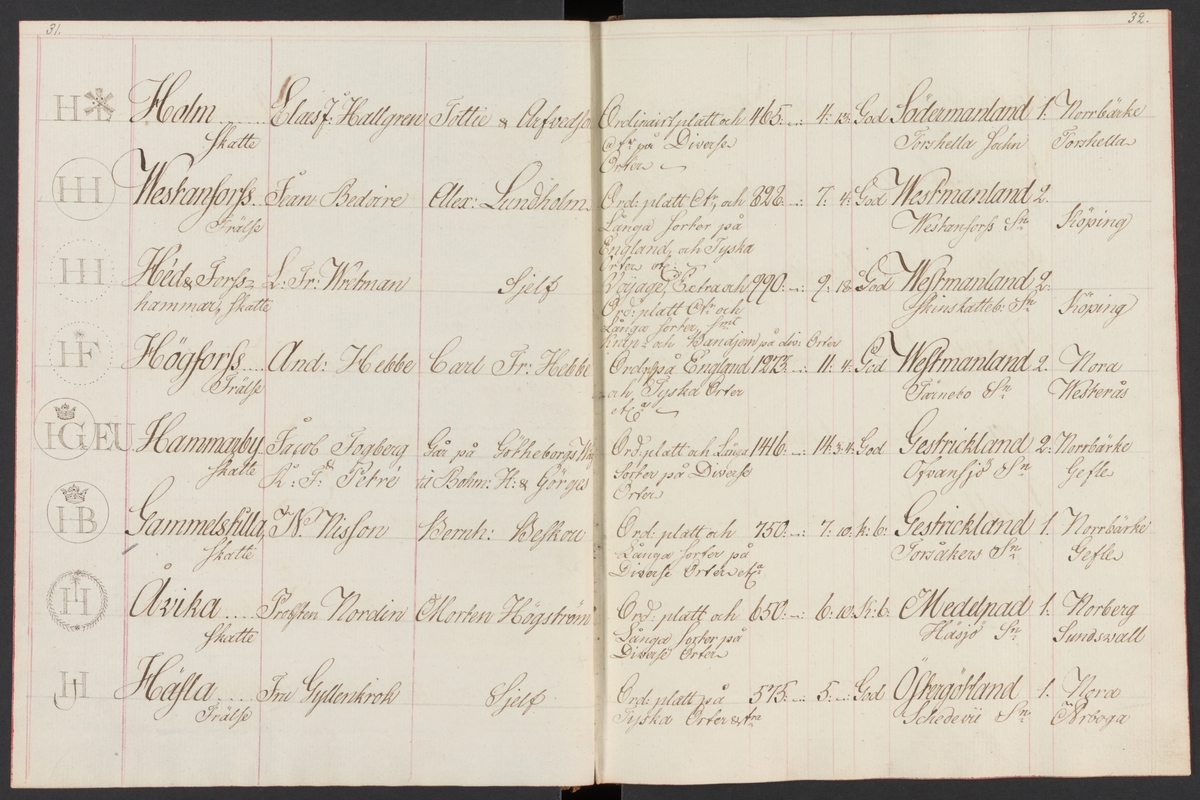 31.
32.
Holm Clas J: Hallgren Tottie & Arfvedson Ordinairt platt och 465. 4: 13: God Södermanland 1. Norrbärke
Skatte på Diverse Torshella Sochn Torshella
Orter
HH Westanforss Jean Bedoire Alex: Lundholm Ord: platt och 822. 7: 4: God Westmanland 2.
Frälse Långa sorter på Westanforss Sn Köping
England, och Tyska
Orter etc:
HH Héd & Forss- L: Fr: Wretman Sjelf Voyage, Extra och 990. 9: 18: God Westmanland 2.
hammar, Skatte Ord: platt och Skinskatteb: Sn Köping
Långa sorter, samt
och Bandjern på div: Orter
HF Högforss And: Hebbe Carl Fr: Hebbe Ord: på England 1273. 11: 4: God Westmanland 2. Nora
Frälse och Tyska Orter Färnebo Sn Westerås
etca
HG EU Hammarby Jacob Fogberg Går på Götheborgs Ord. platt och Långa 1416. 14: 3: 4: God Gestrickland 2. Norrbärke
Skatte R: Fr Petré til Bohm: H: & Görges Sorter på Diverse Ofvansjö Sn Gefle
Orter
HB Gammelstilla, N. Nisson Bernh: Beskou Ord: platt och 750. 7: 10: K: 6: Gestrickland 1. Norrbärke
Skatte Långa sorter på Torsåkers Sn Gefle
Diverse Orter etca
H Åvika Prosten Nordin Morten Högström Ord: platt och 650. 6: 10: K: 6: Medelpad 1. Norberg
Skatte Långa sorter på Håsjö Sn Sundswall
Diverse Orter
H Häfla Fru Gyllenkrok Sjelf Ord: platt på 575. 5. God Östergöthland 1. Nora
Frälse Tyska Orter Schedevi Sn Arboga